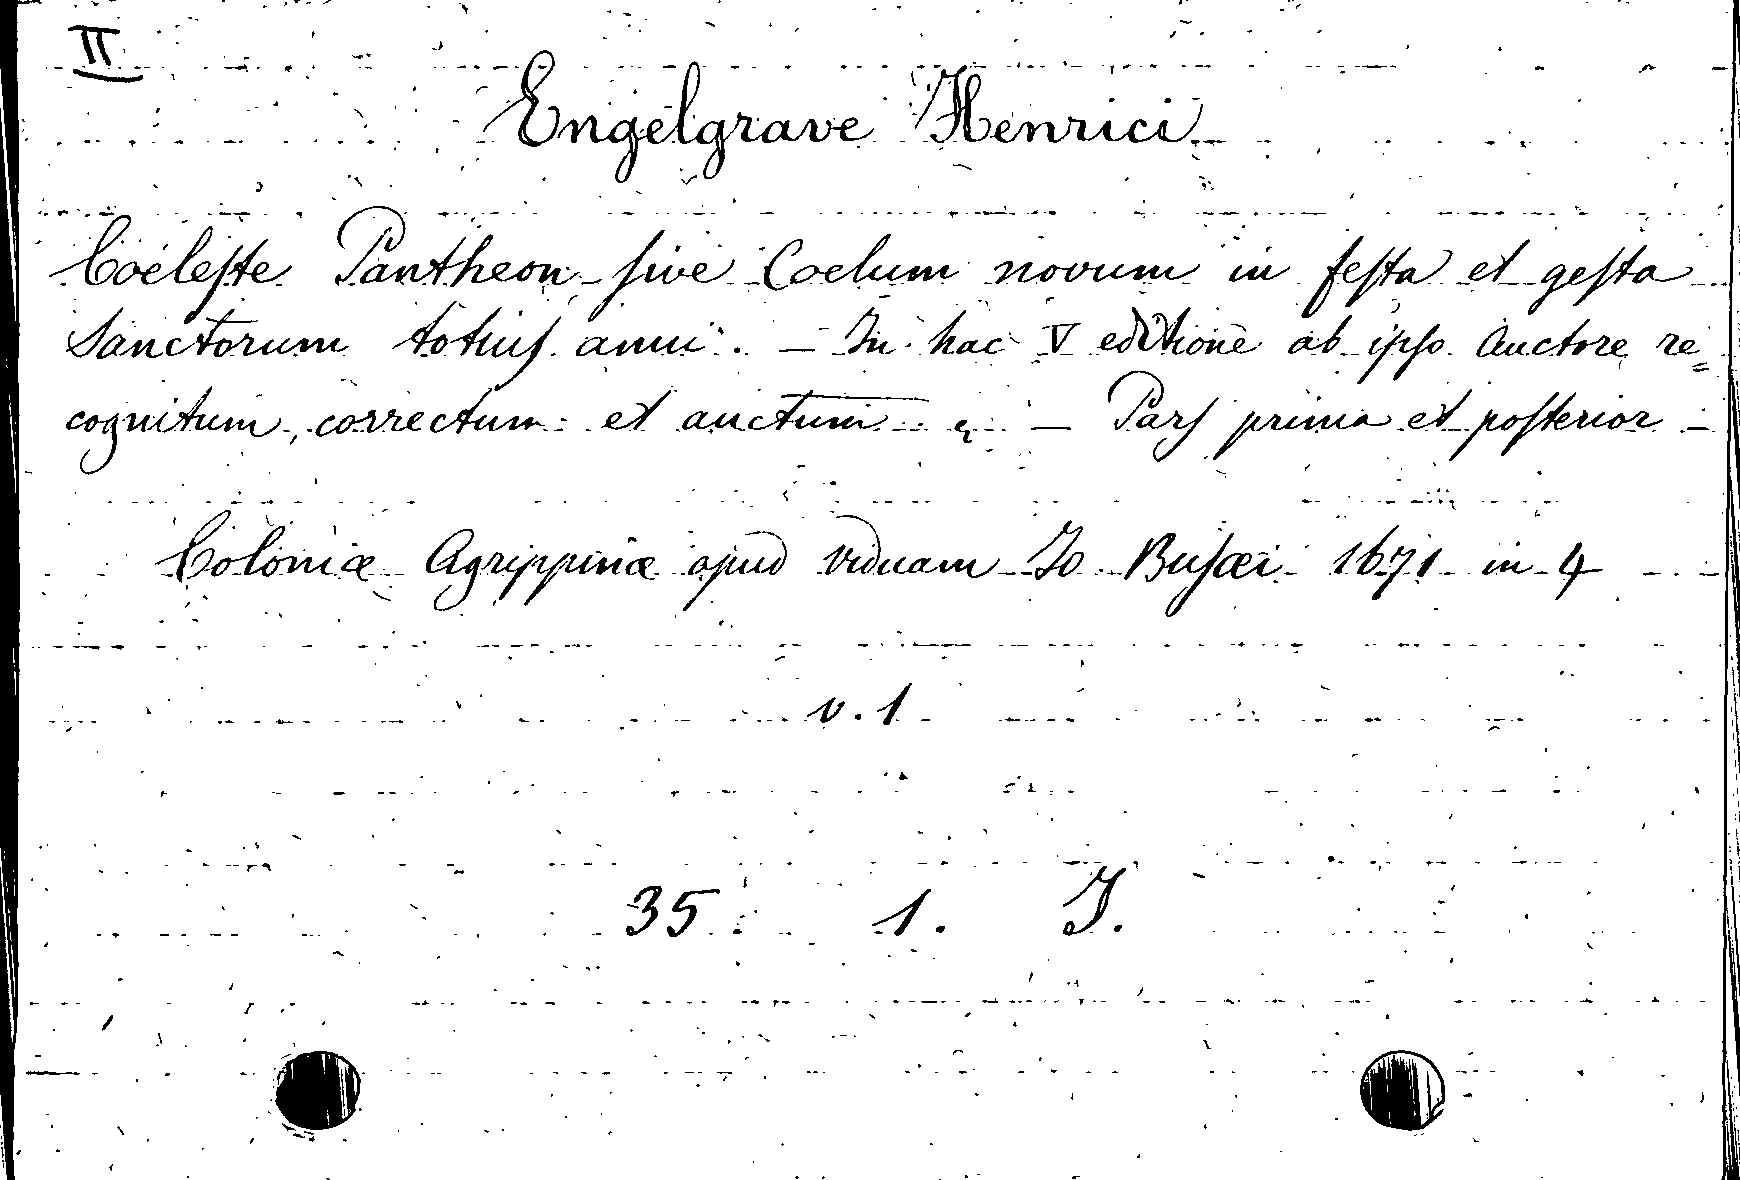 II
Engelgrave Henrici
Coeleſte Pantheon ſive Coelum novum in feſta et geſta
Sanctorum totiuſ anni. — In hac V editione ab ipſo Auctore re=
cognitum, correctum et auctum — Parſ prima et poſterior —
Coloniæ Agrippinæ apud viduam Jo Buſæi 1671 in 4
v. 1
35 1. J.